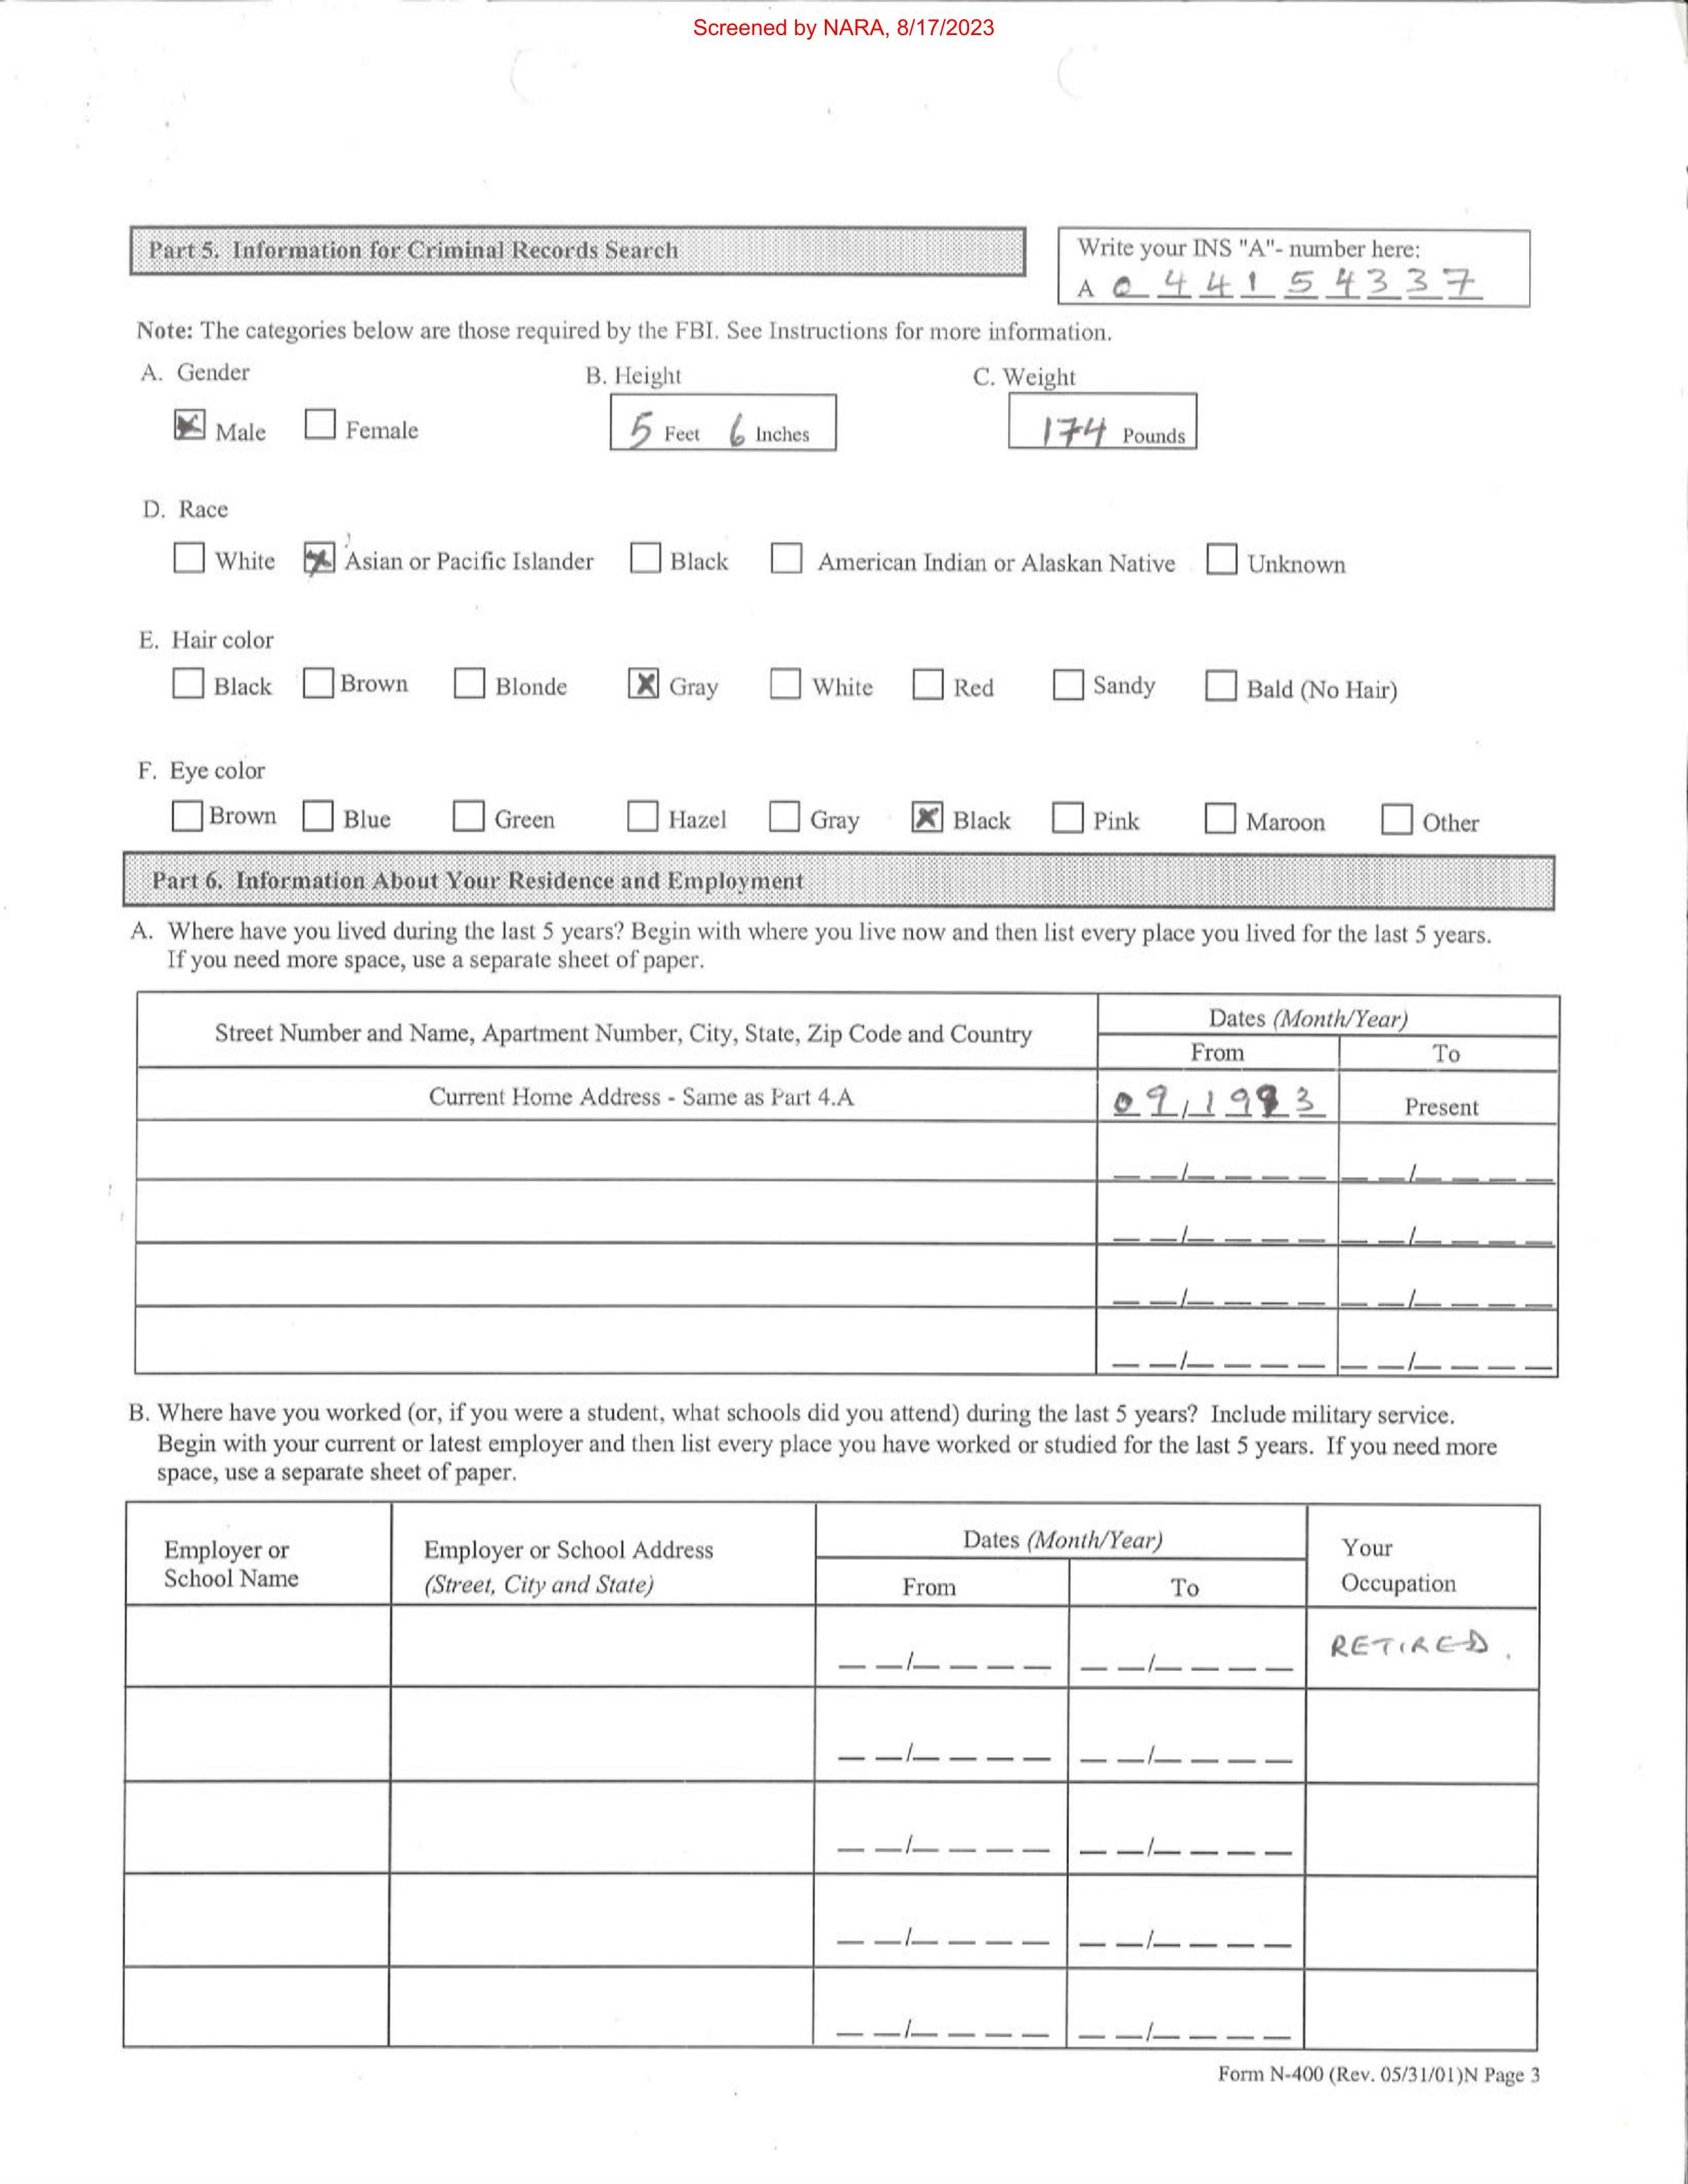 Screened by NARA, 8/17/2023
Part 5. Information for Criminal Records Search
Write your INS "A"- number here:
A 0 4 4 1 5 4 3 3 7
Note: The categories below are those required by the FBI. See Instructions for more information.
A. Gender B. Height C. Weight
Male Female 5 Feet 6 Inches 174 Pounds
D. Race
White Asian or Pacific Islander Black American Indian or Alaskan Native Unknown
E. Hair color
Black Brown Blonde Gray White Red Sandy Bald (No Hair)
F. Eye color
Brown Blue Green Hazel Gray Black Pink Maroon Other
Part 6. Information About Your Residence and Employment
A. Where have you lived during the last 5 years? Begin with where you live now and then list every place you lived for the last 5 years.
If you need more space, use a separate sheet of paper.
Street Number and Name, Apartment Number, City, State, Zip Code and Country Dates (Month/Year)
From To
Current Home Address - Same as Part 4.A 09/1993 Present
_ _/_ _ _ _ _ _/_ _ _ _
_ _/_ _ _ _ _ _/_ _ _ _
_ _/_ _ _ _ _ _/_ _ _ _
_ _/_ _ _ _ _ _/_ _ _ _
B. Where have you worked (or, if you were a student, what schools did you attend) during the last 5 years? Include military service.
Begin with your current or latest employer and then list every place you have worked or studied for the last 5 years. If you need more
space, use a separate sheet of paper.
Employer or School Name Employer or School Address (Street, City and State) Dates (Month/Year) From To Your Occupation
_ _/_ _ _ _ _ _/_ _ _ _ RETIRED.
_ _/_ _ _ _ _ _/_ _ _ _
_ _/_ _ _ _ _ _/_ _ _ _
_ _/_ _ _ _ _ _/_ _ _ _
_ _/_ _ _ _ _ _/_ _ _ _
Form N-400 (Rev. 05/31/01)N Page 3